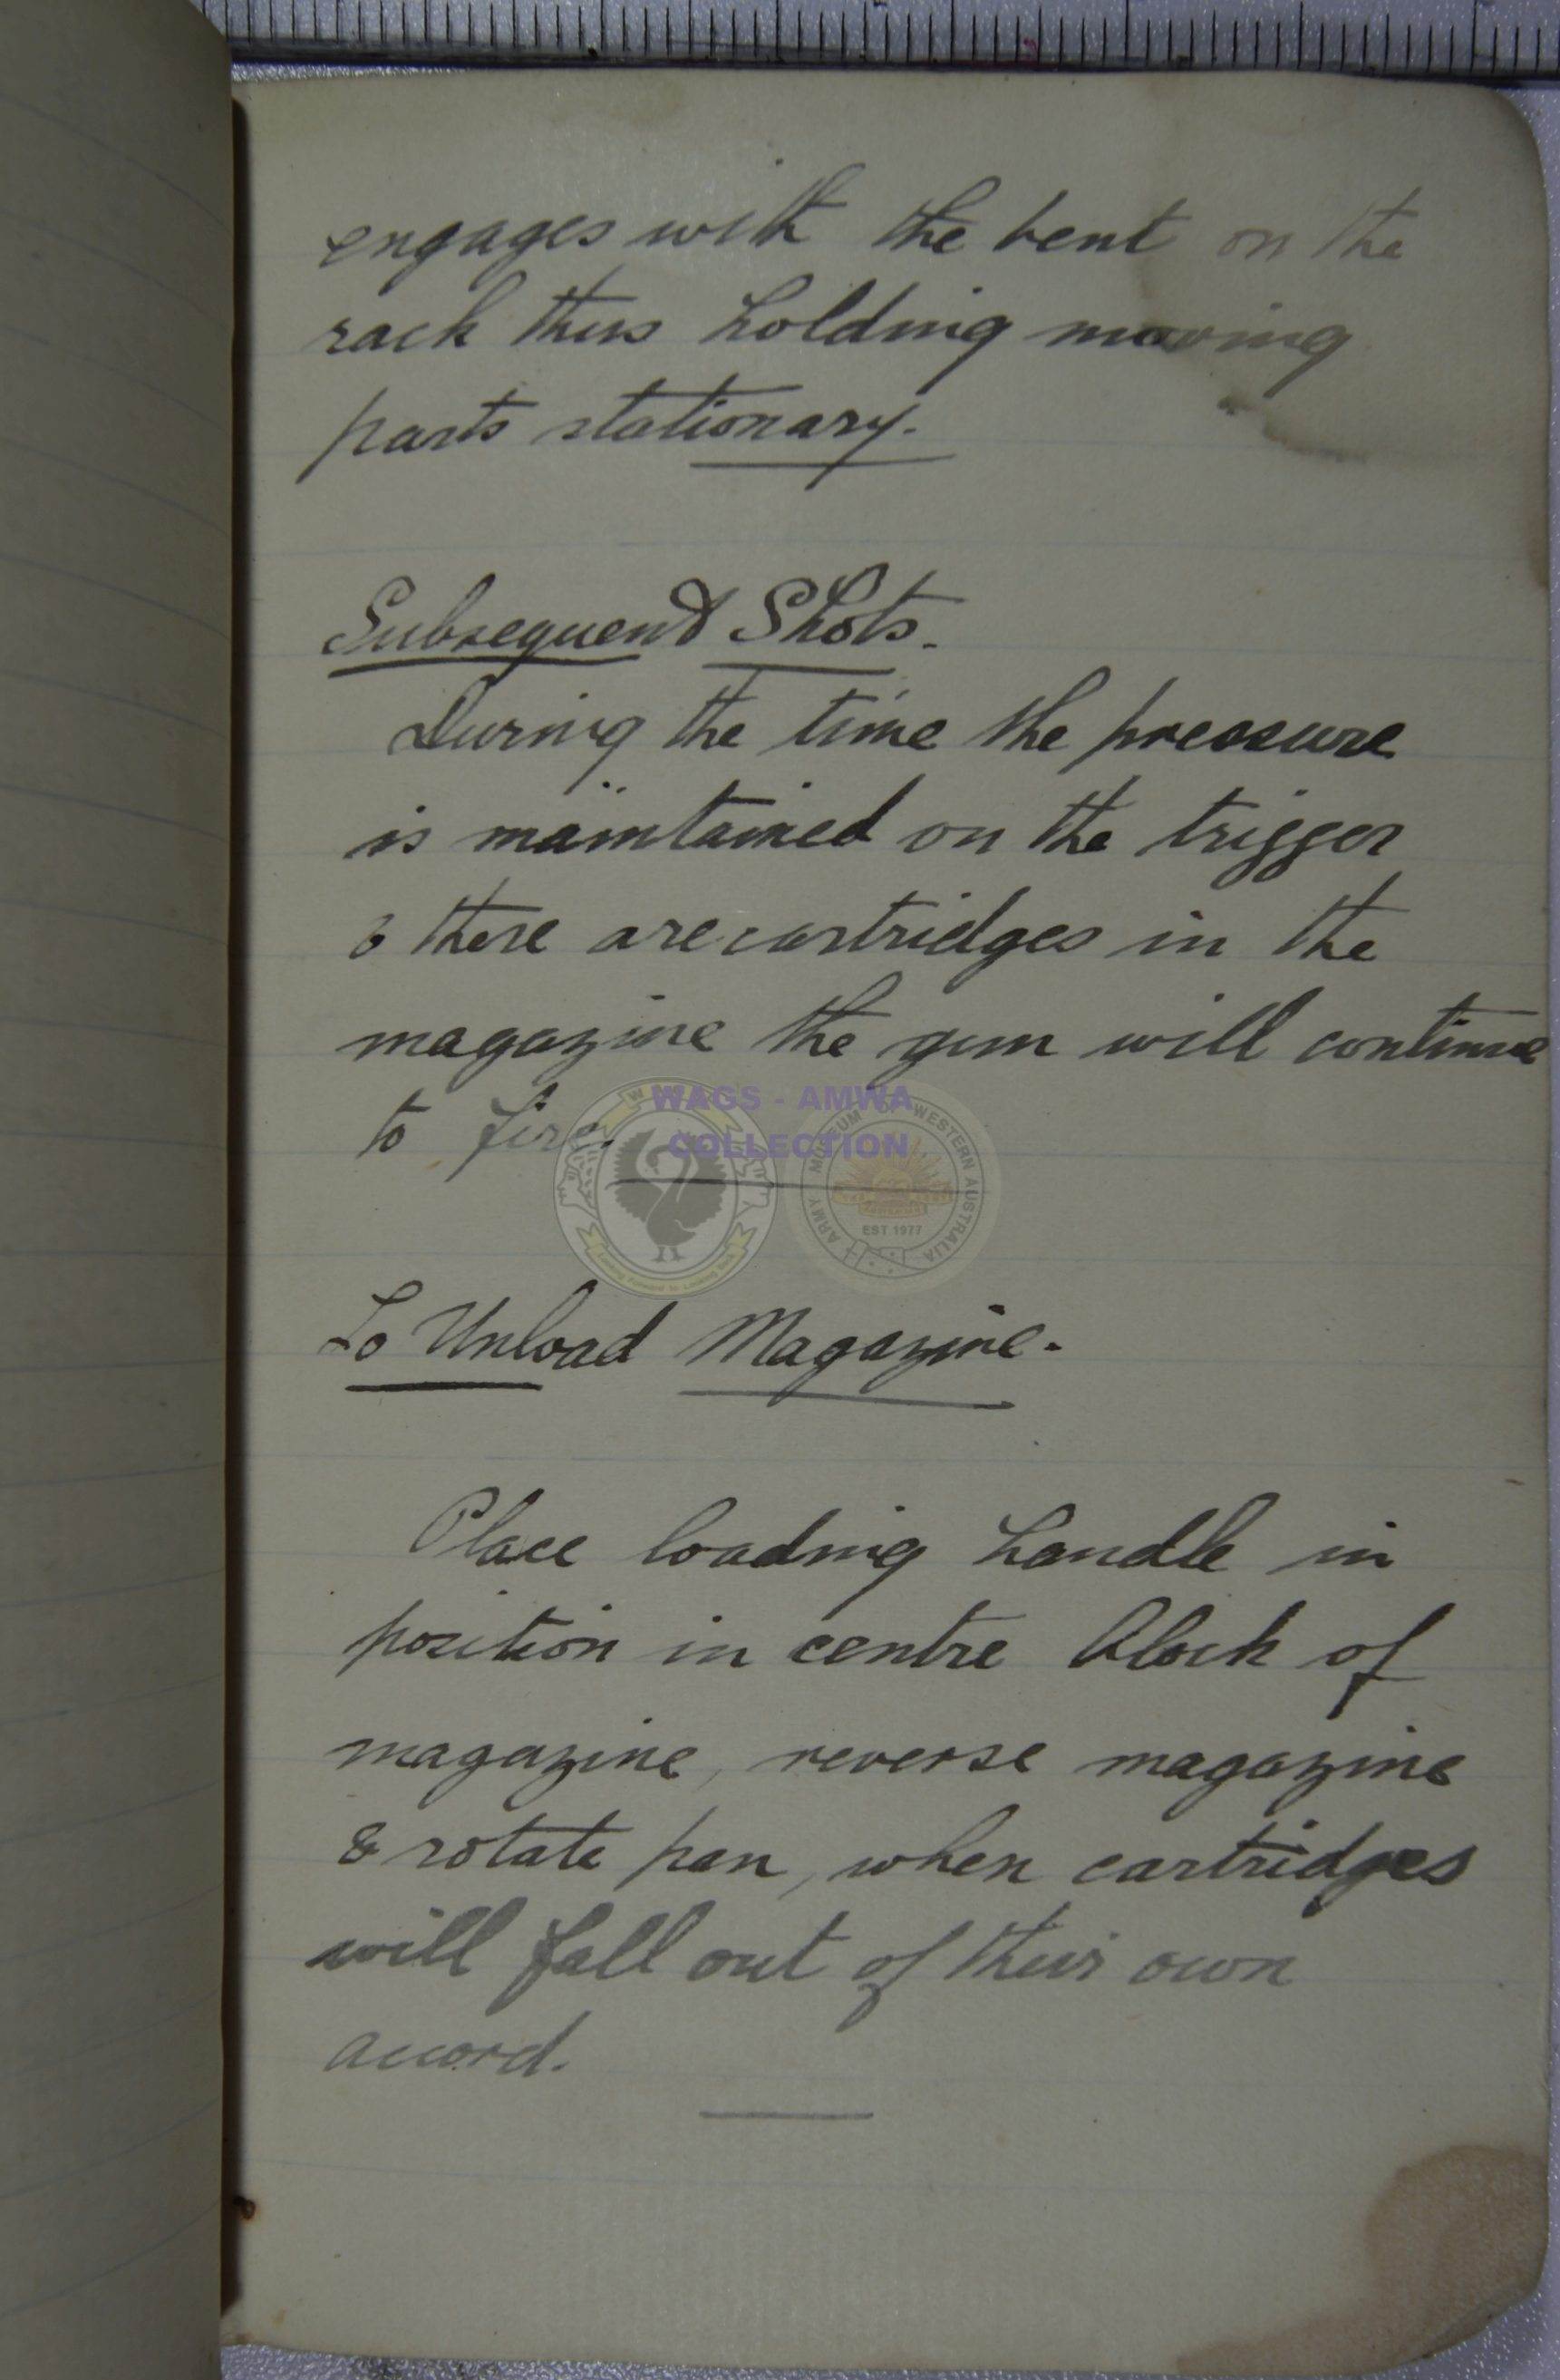 engages with the bent on the
rack thus holding moving
parts stationary.
Subsequent Shots.
During the time the pressure
is maintained on the trigger
& there are cartridges in the
magazine the gun will continue
to fire.
WAGS - AMWA
COLLECTION
ARMY MUSEUM OF WESTERN AUSTRALIA
EST 1977
Looking Forward to Looking Back
To Unload Magazine.
Place loading handle in
position in centre block of
magazine, reverse magazine
& rotate pan, when cartridges
will fall out of their own
accord.